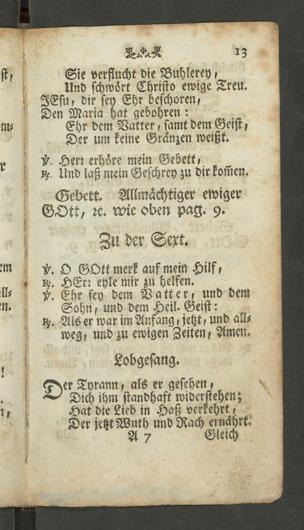 13
Sie verflucht die Buhlerey,
Und schwört Christo ewige Treu.
JEsu, dir sey Ehr beschoren,
Den Maria hat gebohren:
Ehr dem Vatter, samt dem Geist,
Der um keine Gränzen weißt.
℣. Herr erhöre mein Gebett,
℟. Und laß mein Geschrey zu dir kom̄en.
Gebett. Allmächtiger ewiger
GOtt, ꝛc. wie oben pag. 9.
Zu der Sext.
℣. O GOtt merk auf mein Hilf,
℟. HErr eyle mir zu helfen.
℣. Ehr sey dem Vatter, und dem
Sohn, und dem Heil. Geist:
℟. Als er war im Anfang, jetzt, und all-
weg, und zu ewigen Zeiten, Amen.
Lobgesang.
Der Tyrann, als er gesehen,
Dich ihm standhaft widerstehen;
Hat die Lieb in Haß verkehrt,
Der jetzt Wuth und Rach ernährt.
A 7 Gleich